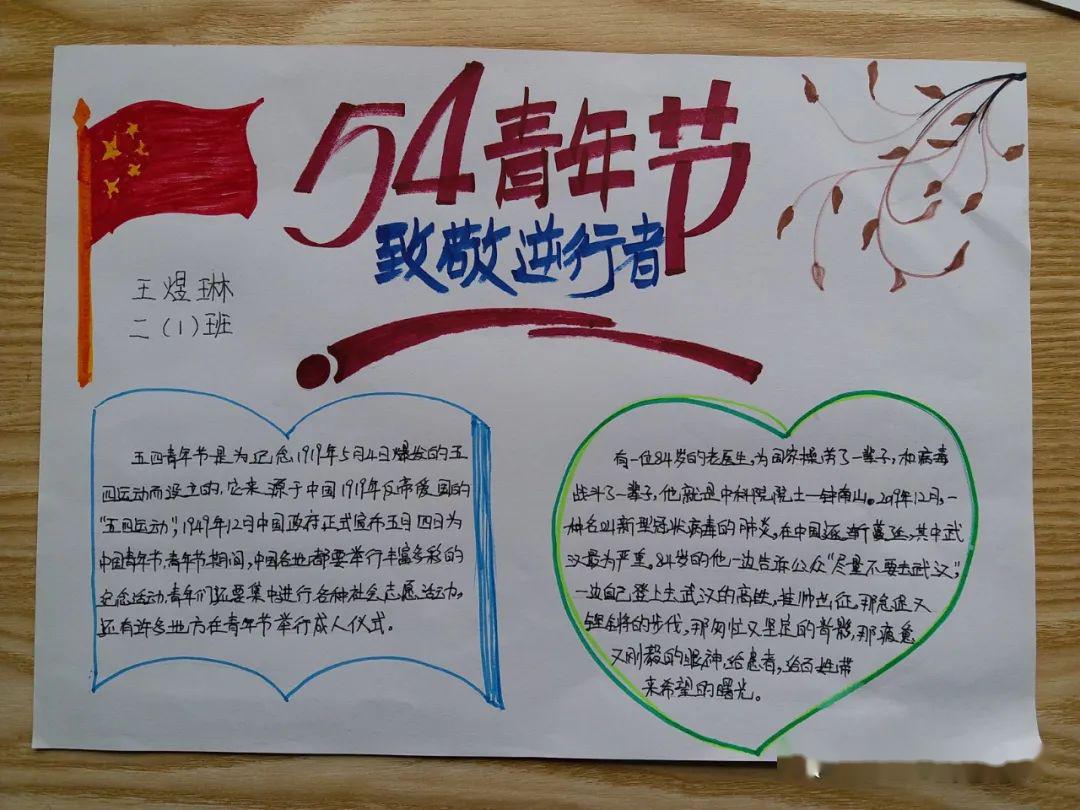 54青年节
致敬逆行者
王煜琳
二(1)班
五四青年节是为纪念1919年5月4日爆发的五
四运动而设立的,它来源于中国1919年反帝爱国的
“五四运动”,1949年12月中国政府正式宣布五月四日为
中国青年节.青年节期间,中国各地都要举行丰富多彩的
纪念活动,青年们还要集中进行各种社会志愿活动,
还有许多地方在青年节举行成人仪式。
有一位84岁的老医生,为国家操劳了一辈子,和病毒
战斗了一辈子,他就是中科院院士—钟南山。2019年12月,一
种名叫新型冠状病毒的肺炎,在中国逐渐蔓延,其中武
汉最为严重。84岁的他一边告诉公众“尽量不要去武汉”,
一边自己登上去武汉的高铁,挂帅出征,那急促又
铿锵的步伐,那匆忙又坚定的背影,那疲惫
又刚毅的眼神,给患者,给百姓带
来希望的曙光。